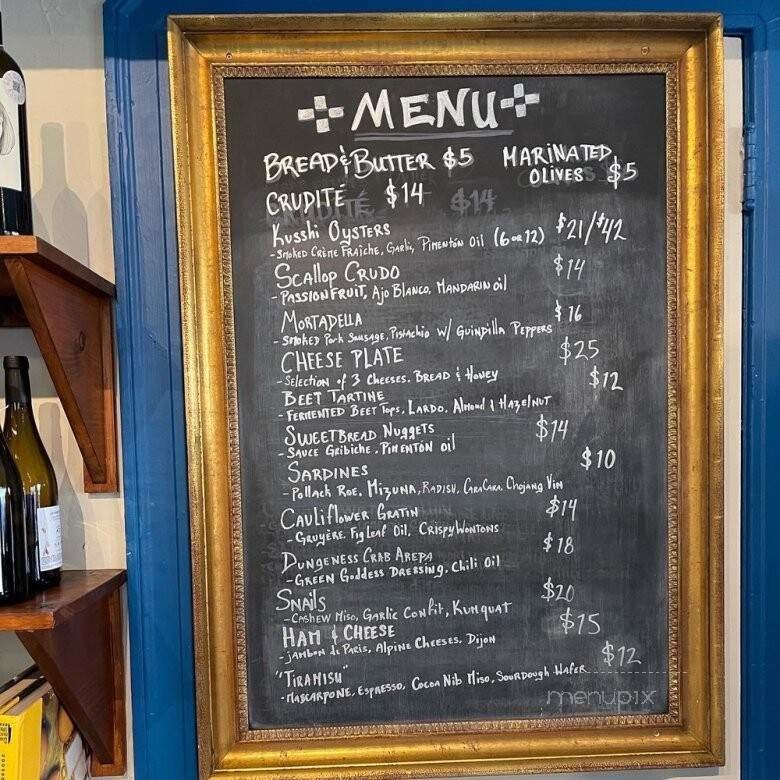 MENU
BREAD & BUTTER $5 MARINATED OLIVES $5
CRUDITÉ $14
Kusshi Oysters $21/$42
- Smoked Crème Fraîche, Garlic, Pimentón Oil (6 or 12)
Scallop Crudo $14
- Passionfruit, Ajo Blanco, Mandarin oil
Mortadella $16
- Smoked Pork Sausage, Pistachio w/ Guindilla Peppers
CHEESE PLATE $25
- Selection of 3 Cheeses, BREAD & Honey
BEET TARTINE $12
- FERMENTED BEET Tops, LARDO, Almond & HAZELNUT
SWEETBREAD NUGGETS $14
- SAUCE GRIBICHE, PIMENTÓN oil
SARDINES $10
- Pollack Roe, Mizuna, RADISH, CARACARA, Chojang Vin
CAULIFLOWER GRATIN $14
- GRUYÈRE, Fig Leaf Oil, CRISPY WONTONS
DUNGENESS CRAB AREPA $18
- GREEN GODDESS DRESSING, Chili Oil
SNAILS $20
- CASHEW MISO, GARLIC CONFIT, KUMQUAT
HAM & CHEESE $15
- JAMBON de PARIS, ALPINE CHEESES, DIJON
"TIRAMISU" $12
- MASCARPONE, ESPRESSO, COCOA NIB MISO, SOURDOUGH WAFER
menupix